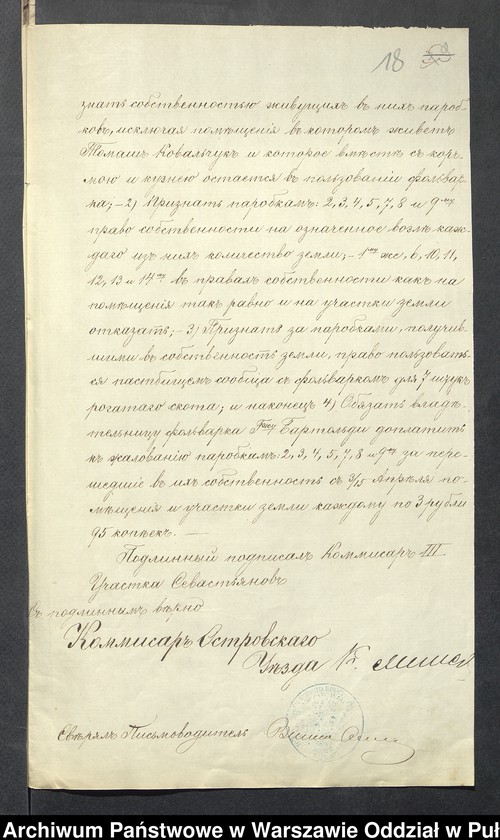 18
знать собственностью живущихъ въ нихъ пароб-
ковъ, исключая помѣщенія въ которомъ живетъ
Томашъ Ковальчукъ и которое вмѣстѣ съ корч-
мою и кузнею остается въ пользованіи фольвар-
ка; – 2) Признать паробкамъ: 2, 3, 4, 5, 7, 8 и 9му
право собственности на означенное возлѣ каж-
даго изъ нихъ количество земли; – 1му же, 6, 10, 11,
12, 13 и 14му въ правахъ собственности какъ на
помѣщенія такъ равно и на участки земли
отказать; – 3) Признать за паробками, получив-
шими въ собственность земли, право пользовать-
ся пастбищемъ сообща съ фольваркомъ для 7 штукъ
рогатаго скота; и наконецъ 4) Обязать владѣ-
тельницу фольварка Гжу Бартольди доплатить
къ жалованію паробкамъ: 2, 3, 4, 5, 7, 8 и 9му за пере-
шедшіе въ ихъ собственность съ 3/15 Апрѣля по-
мѣщенія и участки земли каждому по 3 рубли
95 копѣекъ. —
Подлинный подписалъ Коммисаръ III
Участка Севастьяновъ
Съ подлиннымъ вѣрно
Коммисаръ Островскаго
Уѣзда
Свѣрялъ Письмоводитель
Archiwum Państwowe w Warszawie Oddział w Puł